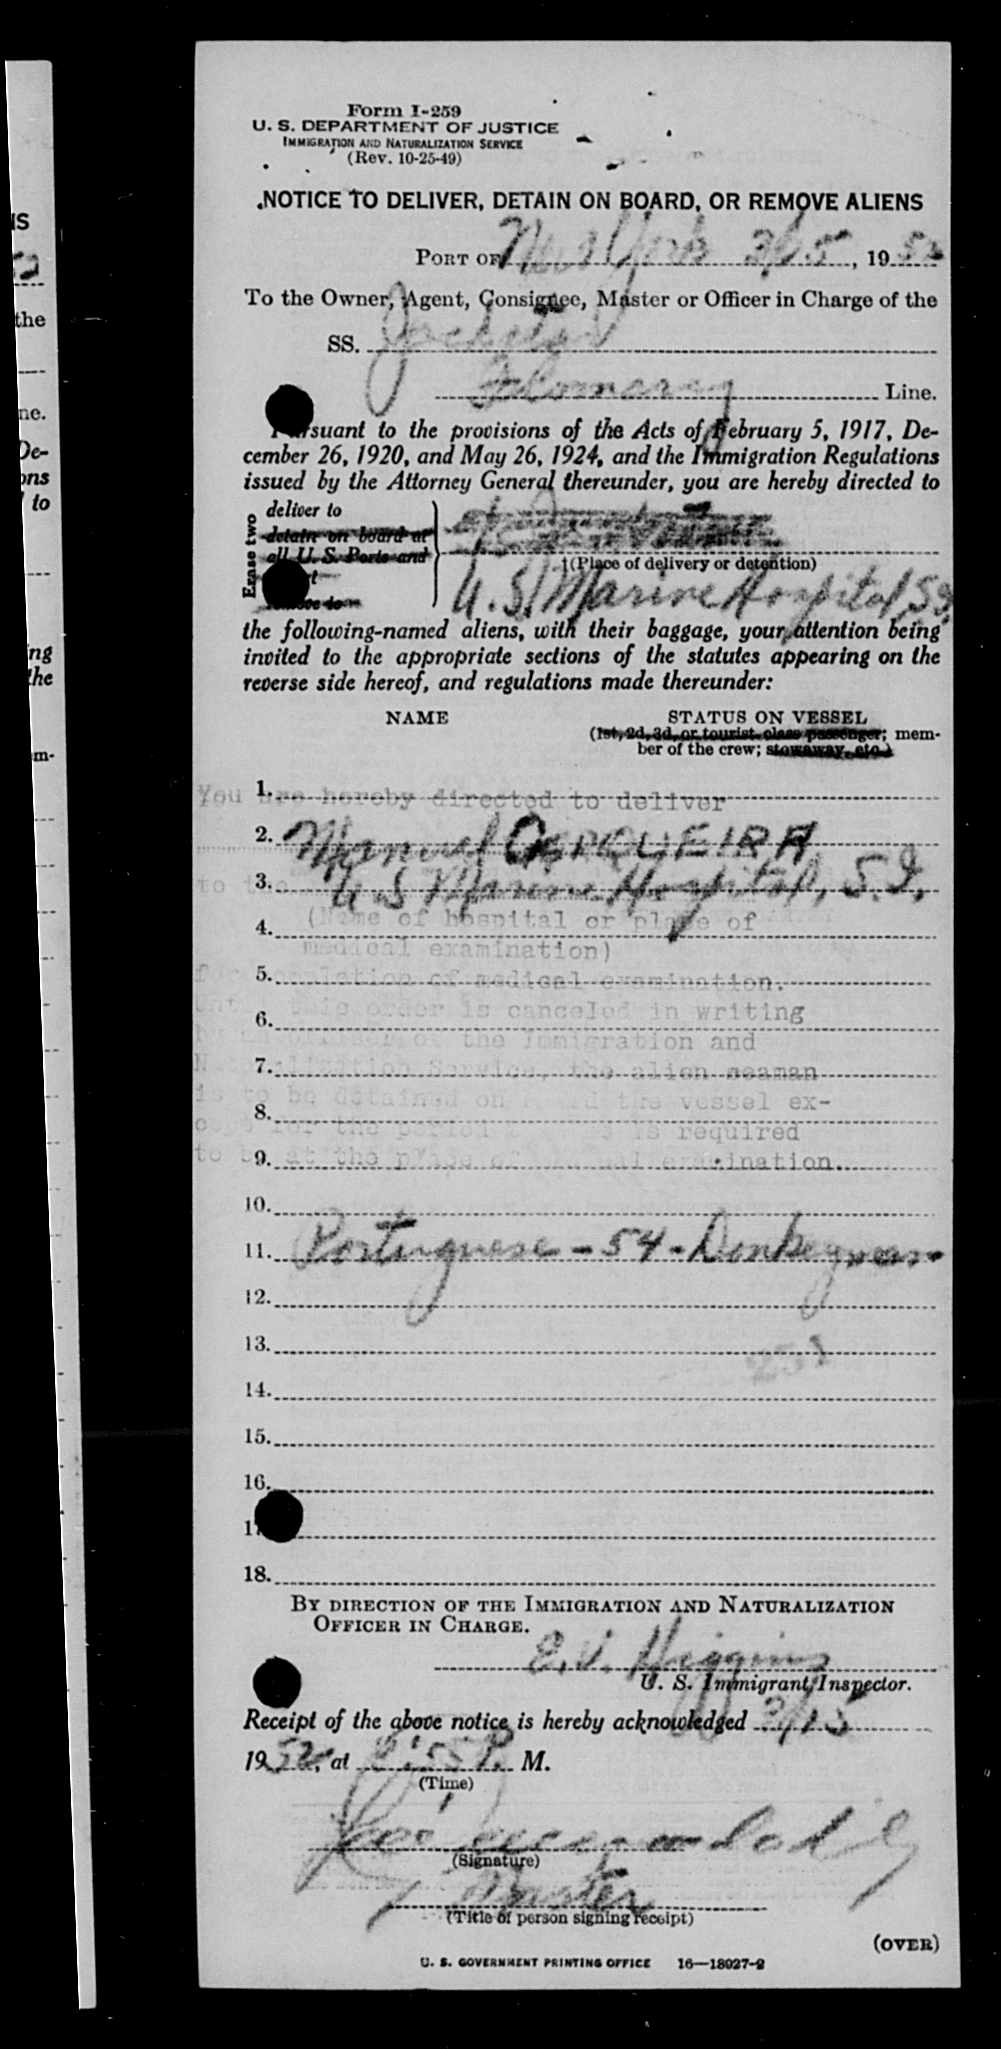 Form I-259
U. S. DEPARTMENT OF JUSTICE
IMMIGRATION AND NATURALIZATION SERVICE
(Rev. 10-25-49)
NOTICE TO DELIVER, DETAIN ON BOARD, OR REMOVE ALIENS
PORT OF New York 3/15, 1952
To the Owner, Agent, Consignee, Master or Officer in Charge of the
SS.
Line.
Pursuant to the provisions of the Acts of February 5, 1917, De-
cember 26, 1920, and May 26, 1924, and the Immigration Regulations
issued by the Attorney General thereunder, you are hereby directed to
Erase two
deliver to
detain on board at
all U. S. Ports and
remove to
†(Place of delivery or detention)
U.S. Marine Hospital, S.I.
the following-named aliens, with their baggage, your attention being
invited to the appropriate sections of the statutes appearing on the
reverse side hereof, and regulations made thereunder:
NAME STATUS ON VESSEL
(1st, 2d, 3d, or tourist class passenger; mem-
ber of the crew; stowaway, etc.)
1.
You are hereby directed to deliver
2. Manuel CERQUEIRA
3. U S Marine Hospital, S.I.
to the
(Name of hospital or place of
4.
medical examination)
5.
for completion of medical examination.
until this order is canceled in writing
6.
by an officer of the Immigration and
7.
Naturalization Service, the alien seaman
is to be detained on board the vessel ex-
8.
cept for the period is required
9.
to be at the place of medical examination.
10.
11. Portuguese - 54 - Donkeyman
12.
13.
14.
15.
16.
17.
18.
BY DIRECTION OF THE IMMIGRATION AND NATURALIZATION
OFFICER IN CHARGE.
E.V. Higgins
U. S. Immigrant Inspector.
Receipt of the above notice is hereby acknowledged 3/15
1952, at P. M.
(Time)
(Signature)
Master
(Title of person signing receipt)
(OVER)
U. S. GOVERNMENT PRINTING OFFICE 16—18027-2